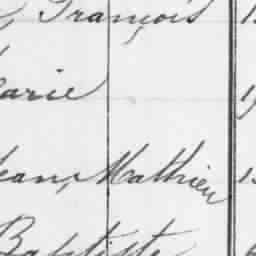 François
Marie
Jean, Mathieu
Baptiste